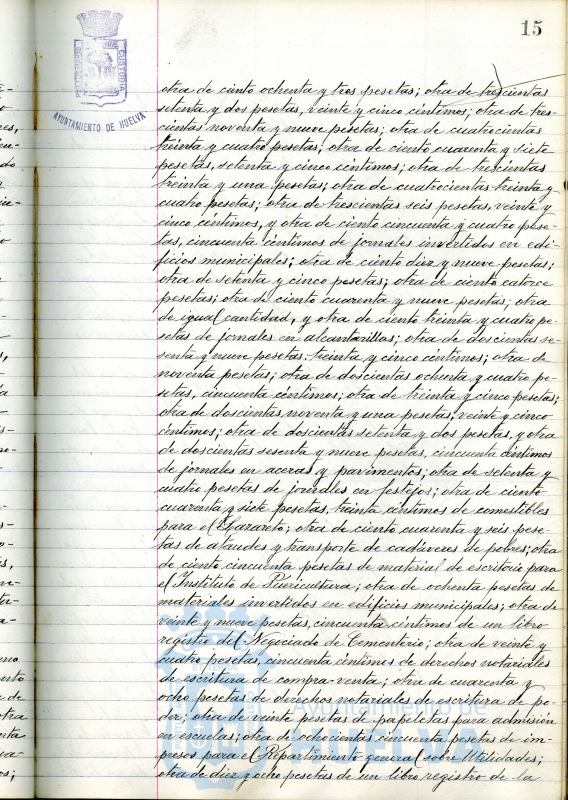 15
AYUNTAMIENTO DE HUELVA
otra de ciento ochenta y tres pesetas; otra de trescientas
setenta y dos pesetas, veinte y cinco céntimos; otra de tres-
cientas noventa y nueve pesetas; otra de cuatrocientas
treinta y cuatro pesetas; otra de ciento cuarenta y siete
pesetas, setenta y cinco céntimos; otra de trescientas
treinta y una pesetas; otra de cuatrocientas treinta y
cuatro pesetas; otra de trescientas seis pesetas, veinte y
cinco céntimos, y otra de ciento cincuenta y cuatro pese-
tas, cincuenta céntimos de jornales invertidos en edi-
ficios municipales; otra de ciento diez y nueve pesetas;
otra de setenta y cinco pesetas; otra de ciento catorce
pesetas; otra de ciento cuarenta y nueve pesetas; otra
de igual cantidad, y otra de ciento treinta y cuatro pe-
setas de jornales en alcantarillas; otra de doscientas se-
senta y nueve pesetas treinta y cinco céntimos; otra de
noventa pesetas; otra de doscientas ochenta y cuatro pe-
setas, cincuenta céntimos; otra de treinta y cinco pesetas;
otra de doscientas noventa y una pesetas, veinte y cinco
céntimos; otra de doscientas setenta y dos pesetas, y otra
de doscientas sesenta y nueve pesetas, cincuenta céntimos
de jornales en aceras y pavimentos; otra de setenta y
cuatro pesetas de jornales en festejos; otra de ciento
cuarenta y siete pesetas, treinta céntimos de comestibles
para el Lazareto; otra de ciento cuarenta y seis pese-
tas de ataudes y transporte de cadáveres de pobres; otra
de ciento cincuenta pesetas de material de escritorio para
el Instituto de Puericultura; otra de ochenta pesetas de
materiales invertidos en edificios municipales; otra de
veinte y nueve pesetas, cincuenta céntimos de un libro
registro del Negociado de Cementerio; otra de veinte y
cuatro pesetas, cincuenta céntimos de derechos notariales
de escritura de compra-venta; otra de cuarenta y
ocho pesetas de derechos notariales de escritura de po-
der; otra de veinte pesetas de papeletas para admisión
en escuelas; otra de ochocientas cincuenta pesetas de im-
presos para el Repartimiento general sobre Utilidades;
otra de diez y ocho pesetas de un libro registro de la
Ayuntamiento de
HUELVA